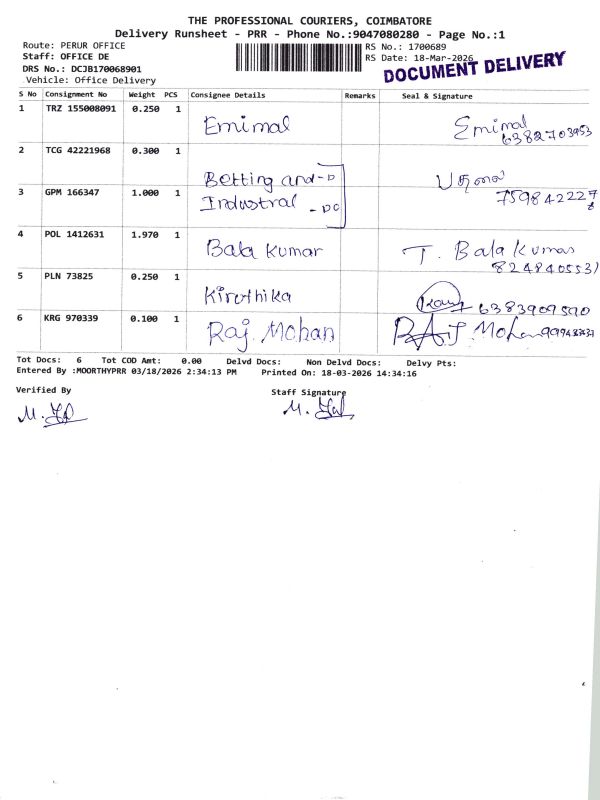 THE PROFESSIONAL COURIERS, COIMBATORE
Delivery Runsheet - PRR - Phone No.:9047080280 - Page No.:1
Route: PERUR OFFICE
RS No.: 1700689
Staff: OFFICE DE
RS Date: 18-Mar-2026
DRS No.: DCJB170068901
DOCUMENT DELIVERY
Vehicle: Office Delivery
S No Consignment No Weight PCS Consignee Details Remarks Seal & Signature
1 TRZ 155008091 0.250 1 Emimal Emimal
6382703953
2 TCG 42221968 0.300 1 Betting and - D
3 GPM 166347 1.000 1 Industral - DC 7598422278
4 POL 1412631 1.970 1 Bala Kumar T. Bala Kumar
8248405531
5 PLN 73825 0.250 1 Kiruthika 6383909590
6 KRG 970339 0.100 1 Raj. Mohan RAJ. Mohan
Tot Docs: 6 Tot COD Amt: 0.00 Delvd Docs: Non Delvd Docs: Delvy Pts:
Entered By :MOORTHYPRR 03/18/2026 2:34:13 PM Printed On: 18-03-2026 14:34:16
Verified By Staff Signature
M. M.